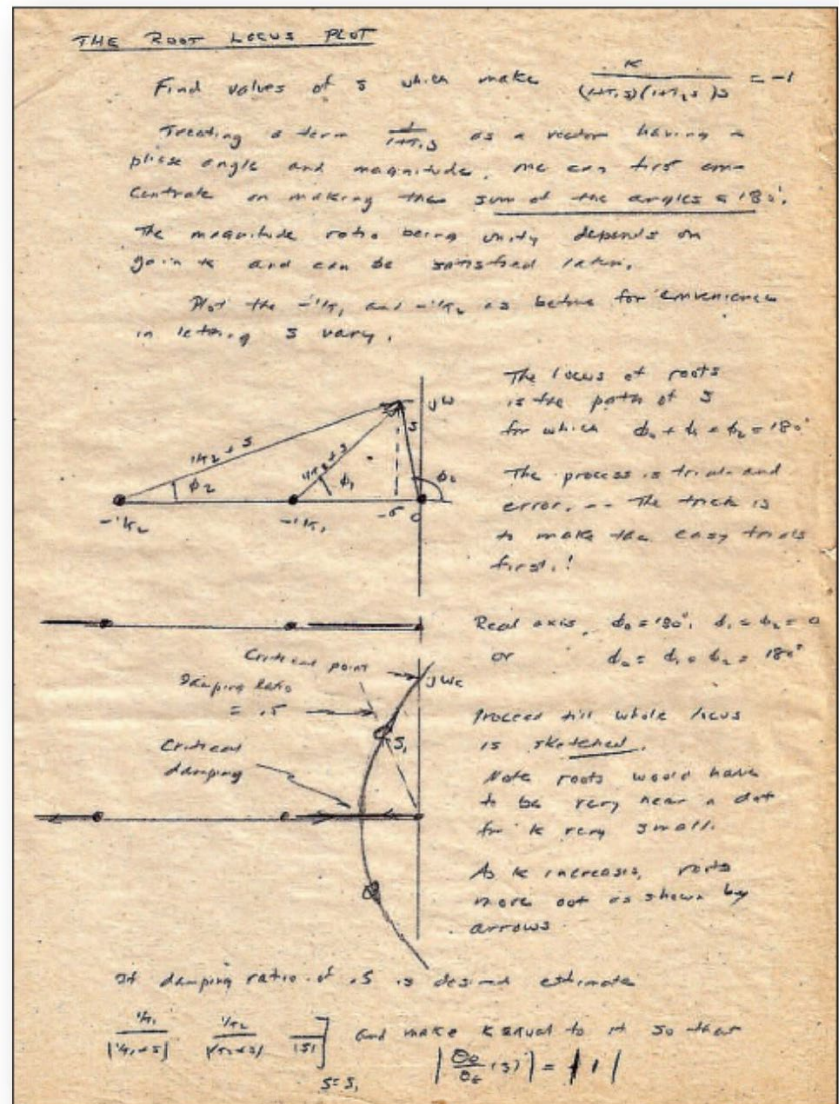 THE ROOT LOCUS PLOT
Find values of s which make K / (1+τ₁s)(1+τ₂s)s = -1
Treating a term 1 / 1+τ₁s as a vector having a
phase angle and magnitude, we can first con-
centrate on making the sum of the angles = 180°.
The magnitude ratio being unity depends on
gain K and can be satisfied later.
Plot the -1/τ₁ and -1/τ₂ as before for convenience
in letting s vary.
The locus of roots
is the path of s
for which φ₀ + φ₁ + φ₂ = 180°
The process is trial and
error. -- The trick is
to make the easy trials
first.!
jω
s
1/τ₂+s
1/τ₁+s
φ₂
φ₁
φ₀
-1/τ₂
-1/τ₁
-σ
0
Real axis φ₀ = 180°, φ₁ = φ₂ = 0
or φ₀ = φ₁ = φ₂ = 180°
Critical point
jωc
Damping ratio
= .5
s₁
Critical
damping
Proceed till whole locus
is sketched.
Note roots would have
to be very near a dot
for K very small.
As K increases, roots
move out as shown by
arrows
If damping ratio of .5 is desired estimate
1/τ₁ / |1/τ₁+s| 1/τ₂ / |1/τ₂+s| / |s| ] s=s₁ and make K equal to it so that
|θ₀/θε (s)| = |1|